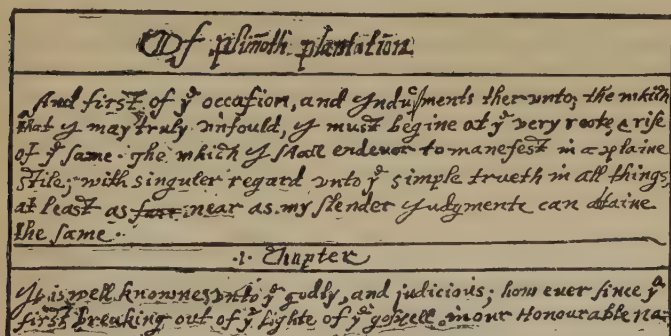 Of plimoth plantation
And first of yͤ occasion, and Yndusments ther vnto; the which
that y may truly vnfould, y must begine at yͤ very roote, & rise
of yͤ same. The which y shall endeuor to manefest in a plaine
stile; with singuler regard vnto yͤ simple trueth in all things,
at least as ~~farr~~ near as my slender Judgmente can attaine
the same.
.1. Chapter
It is well knowne vnto yͤ godly, and judicious; how euer since yͤ
first breaking out of yͤ lighte of yͤ gospell, in our Honourable na